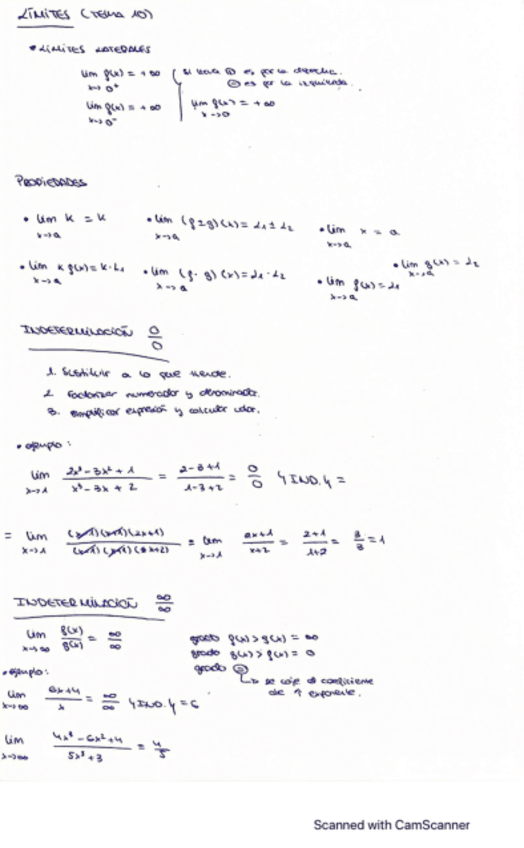 LÍMITES (TEMA 10)
• LÍMITES LATERALES
lim f(x) = +∞ x→0⁺ ( si lleva ⊕ es por la derecha.
⊖ es por la izquierda.
lim f(x) = +∞ x→0⁻ lim f(x) = +∞ x→0
PROPIEDADES
• lim k = k x→a • lim (f±g)(x) = L1 ± L2 x→a • lim x = a x→a
• lim k f(x) = k·L1 x→a • lim (f·g)(x) = L1·L2 x→a • lim f(x) = L1 x→a • lim g(x) = L2 x→a
INDETERMINACIÓN 0/0
1. Sustituir a lo que tiende.
2. Factorizar numerador y denominador.
3. Simplificar expresión y calcular valor.
• ejemplo:
lim x→1 (2x³-3x²+1)/(x³-3x+2) = (2-3+1)/(1-3+2) = 0/0 4 IND. 4 =
= lim x→1 (x-1)(x-1)(2x+1)/(x-1)(x-1)(x+2) = lim x→1 (2x+1)/(x+2) = (2+1)/(1+2) = 3/3 = 1
INDETERMINACIÓN ∞/∞
lim x→∞ f(x)/g(x) = ∞/∞ grado f(x) > g(x) = ∞
grado g(x) > f(x) = 0
grado ⊜
↳ se coje el coeficiente
de ↑ exponente.
• ejemplo:
lim x→∞ (6x+4)/x = ∞/∞ 4 IND. 4 = 6
lim x→∞ (4x³-6x²+4)/(5x³+3) = 4/5
Scanned with CamScanner